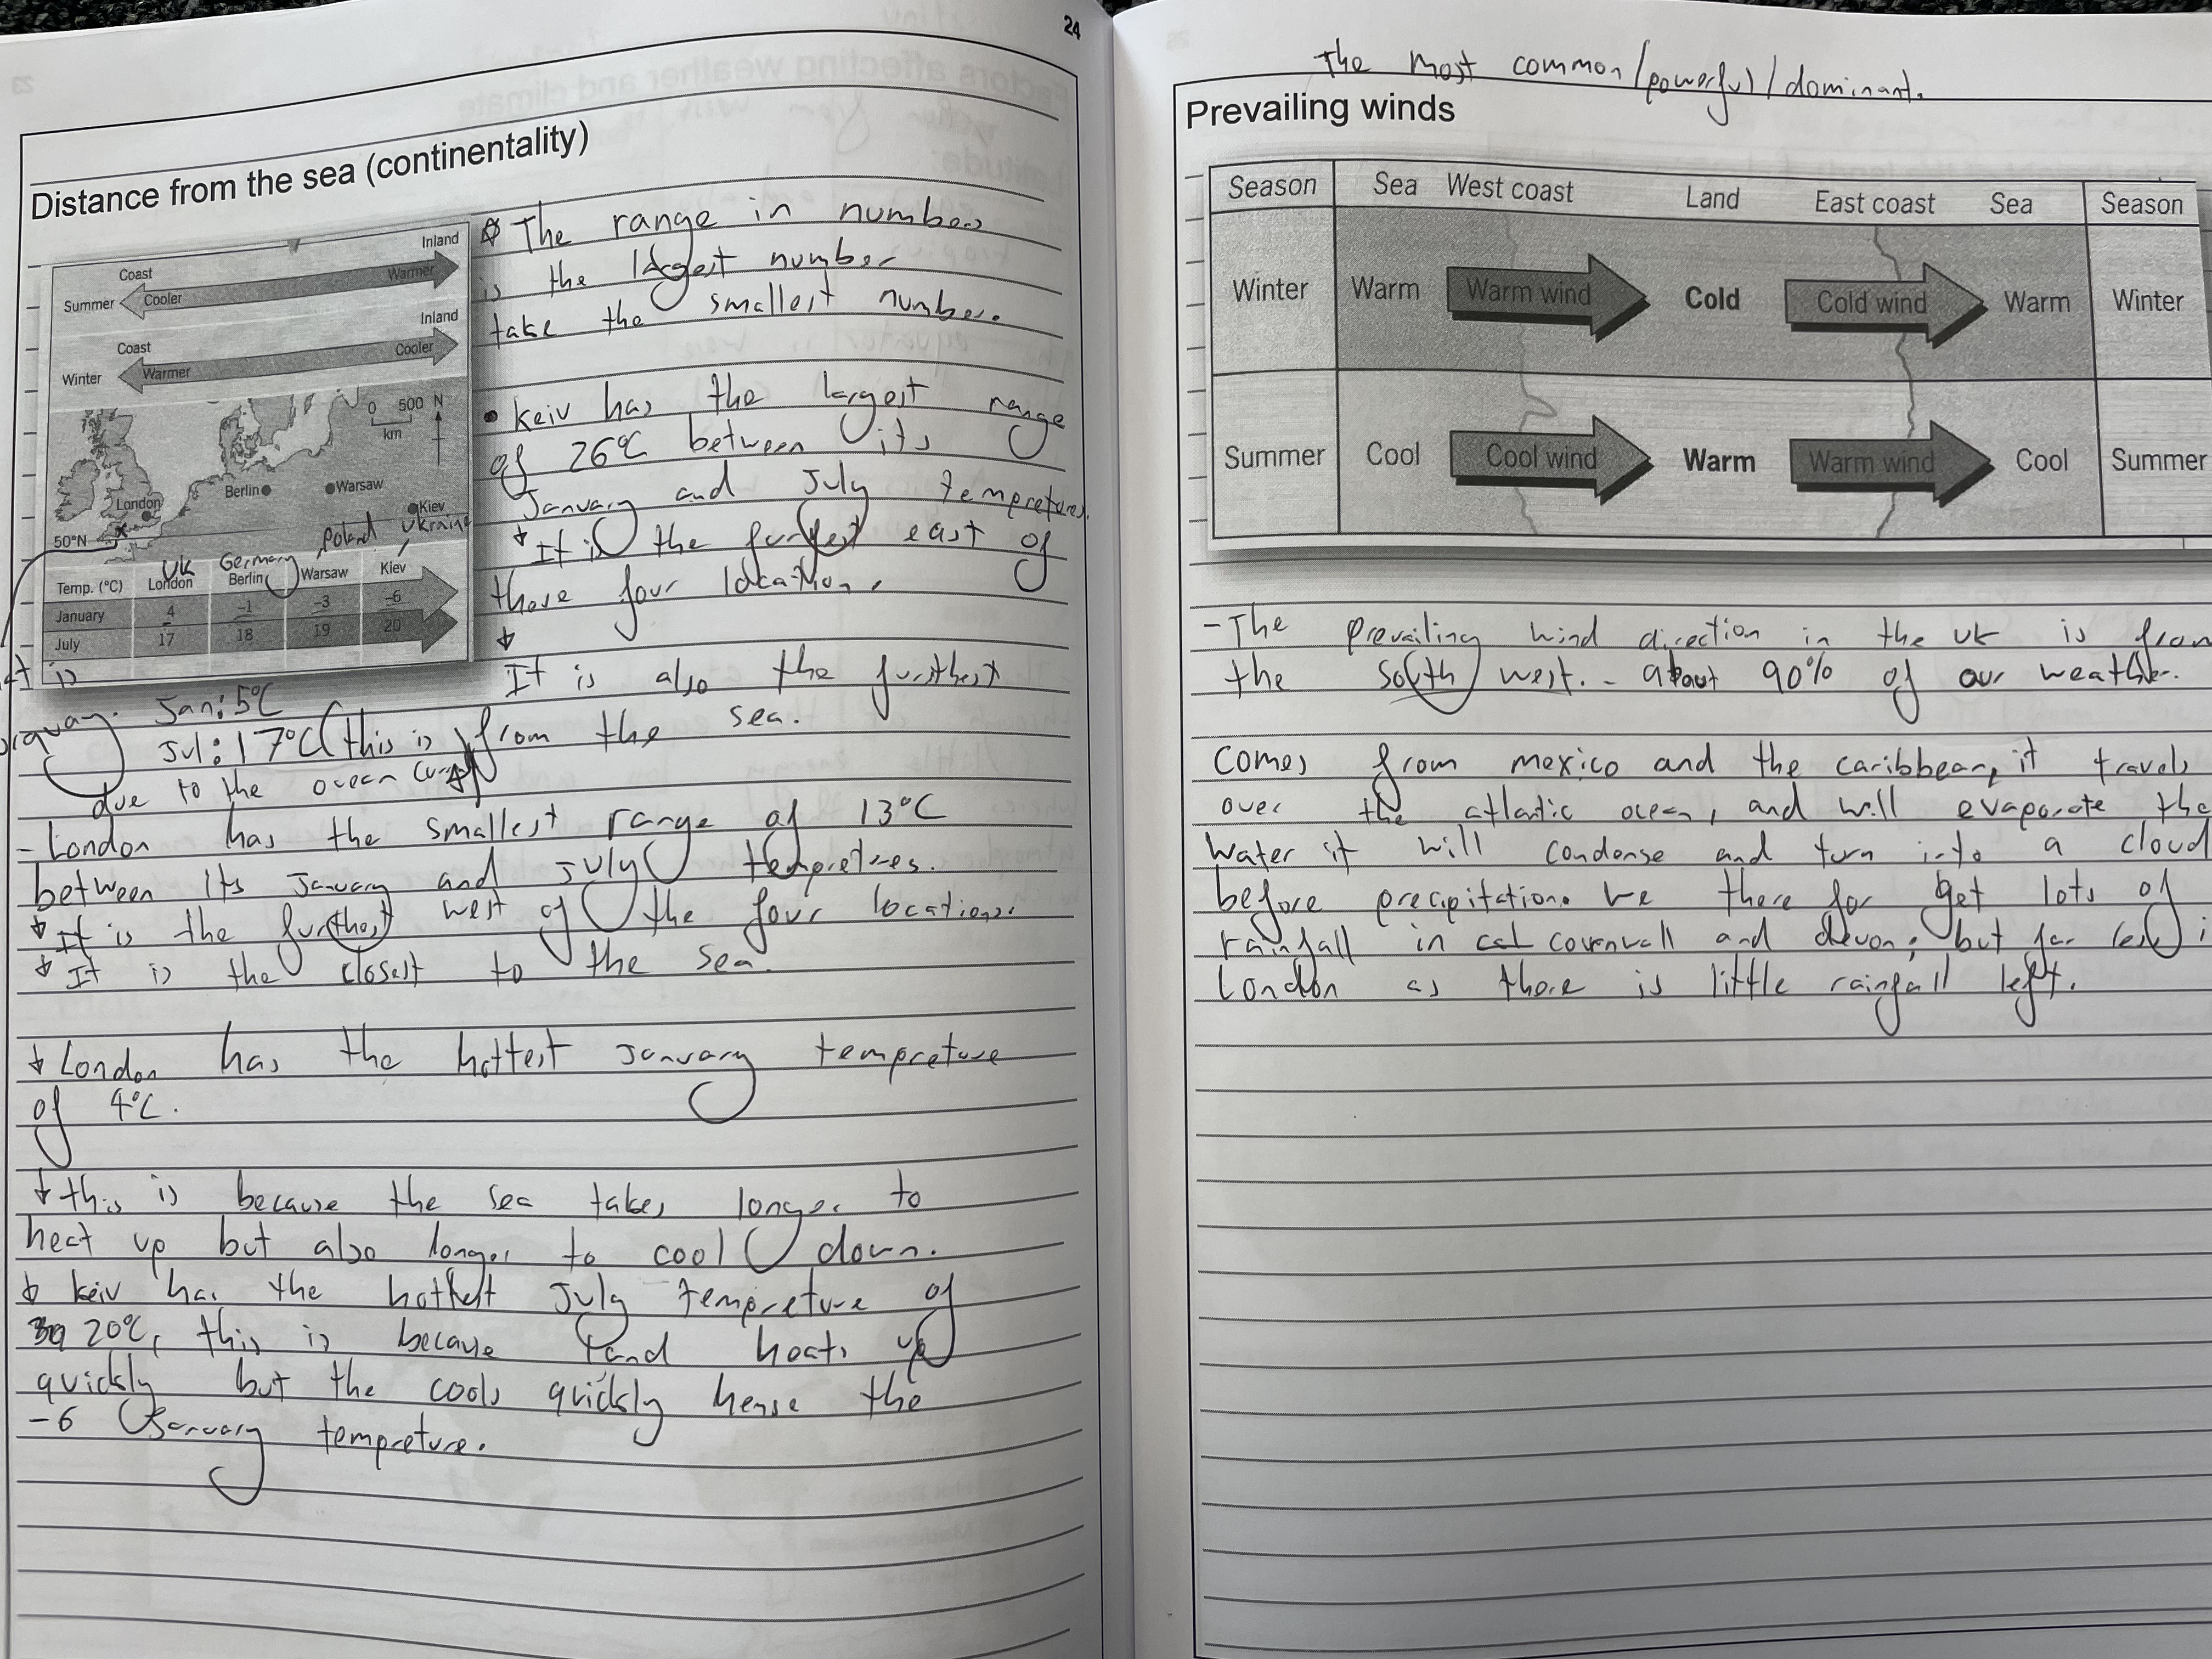 24
Distance from the sea (continentality)
Coast
Inland
Summer
Cooler
Warmer
Coast
Inland
Winter
Warmer
Cooler
0 500 N
km
London
Berlin
Warsaw
Kiev
50°N
UK Germany Poland Ukraine
Temp. (°C) London Berlin Warsaw Kiev
January 4 -1 -3 -6
July 17 18 19 20
The range in numbers
is the largest number
take the smallest number.
• Keiv has the largest range
of 26°C between its
January and July tempretures.
It is the furthest east of
those four locations.
It is also the furthest
from the sea.
Jan: 5°C
Jul: 17°C (this is
due to the ocean
- London has the smallest range of 13°C
between its January and July tempretures.
It is the furthest west of the four locations.
It is the closest to the sea.
London has the hottest January tempreture
of 4°C.
this is because the sea takes longer to
heat up but also longer to cool down.
Keiv has the hottest July tempreture of
20°C, this is because land heats up
quickly but the cools quickly hense the
-6 January tempreture.
The most common/powerful/dominant.
Prevailing winds
Season Sea West coast Land East coast Sea Season
Winter Warm Warm wind Cold Cold wind Warm Winter
Summer Cool Cool wind Warm Warm wind Cool Summer
- The prevailing wind direction in the UK is from
the South west. - about 90% of our weather.
Comes from mexico and the caribbean, it travels
over the atlantic ocean, and will evaporate the
water it will condense and turn into a cloud
before precipitation. We there for get lots of
rainfall in covenwall and devon, but far less i
London as there is little rainfall left.